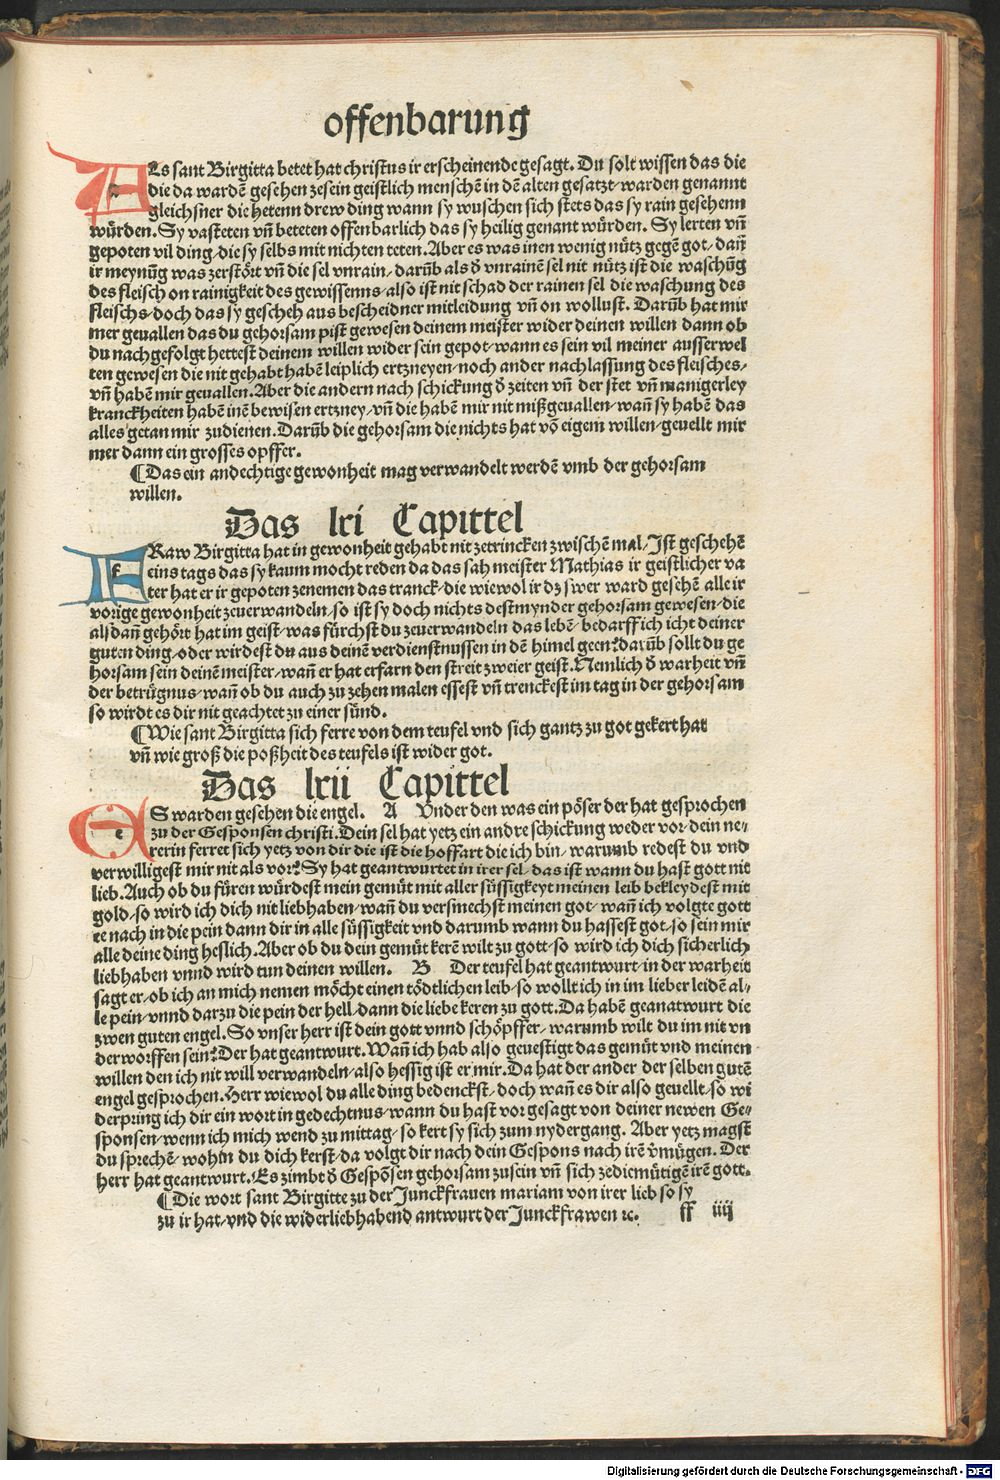 offenbarung
ALs sant Birgitta betet hat christus ir erscheinende gesagt. Du solt wissen das die
die da wardē gesehen zesein geistlich menschē in dē alten gesatzt/warden genannt
gleichsner die hetenn drew ding wann sy wuschen sich stets das sy rain gesehenn
würden. Sy vasteten vñ beteten offenbarlich das sy heilig genant würden. Sy lerten vñ
gepoten vil ding/die sy selbs mit nichten teten. Aber es was inen wenig nütz gegē got/dañ
ir meynūg was zerstört vñ die sel vnrain/darūb als ď vnrainē sel nit nütz ist die waschūg
des fleisch on rainigkeit des gewissenns/also ist nit schad der rainen sel die waschung des
fleischs/doch das sy gescheh aus bescheidner mitleidung vñ on wollust. Darūb hat mir
mer geuallen das du gehorsam pist gewesen deinem meister wider deinen willen dann ob
du nachgefolgt hettest deinem willen wider sein gepot/wann es sein vil meiner ausserwel
ten gewesen die nit gehabt habē leiplich ertzneyen/noch ander nachlassung des fleisches/
vñ habē mir geuallen. Aber die andern nach schickung ď zeiten vñ der stet vñ manigerley
kranckheiten habē inē bewisen ertzney/vñ die habē mir nit mißgeuallen/wañ sy habē das
alles getan mir zudienen. Darūb die gehorsam die nichts hat vō eigem willen/geuellt mir
mer dann ein grosses opffer.
¶ Das ein andechtige gewonheit mag verwandelt werdē vmb der gehorsam
willen.
Das lxi Capittel
FRaw Birgitta hat in gewonheit gehabt nit zetrincken zwischē mal/Ist geschehē
eins tags das sy kaum mocht reden da das sah meister Mathias ir geistlicher va
ter hat er ir gepoten zenemen das tranck/die wiewol ir dz swer ward geschē alle ir
vorige gewonheit zeuerwandeln/so ist sy doch nichts destmynder gehorsam gewesen/die
alsdañ gehört hat im geist/was fürchst du zeuerwandeln das lebē/bedarff ich icht deiner
guten ding/oder wirdest du aus deinē verdienstnussen in dē himel geen? darūb sollt du ge
horsam sein deinē meister/wañ er hat erfarn den streit zweier geist. Nemlich ď warheit vñ
der betrügnus/wañ ob du auch zu zehen malen essest vñ trenckest im tag in der gehorsam
so wirdt es dir nit geachtet zu einer sünd.
¶ Wie sant Birgitta sich ferre von dem teufel vnd sich gantz zu got gekert hat
vñ wie groß die poßheit des teufels ist wider got.
Das lxii Capittel
ES warden gesehen die engel. A Vnder den was ein pöser der hat gesprochen
zu der Gesponsen christi. Dein sel hat yetz ein andre schickung weder vor/dein ne/
rerin ferret sich yetz von dir die ist die hoffart die ich bin/warumb redest du vnd
verwilligest mir nit als vor? Sy hat geantwurtet in irer sel/das ist wann du hast gott nit
lieb. Auch ob du füren würdest mein gemüt mit aller süssigkeyt meinen leib bekleydest mit
gold/so wird ich dich nit liebhaben/wañ du versmechst meinen got/wañ ich volgte gott
ee nach in die pein dann dir in alle süssigkeit vnd darumb wann du hassest got/so sein mir
alle deine ding heslich. Aber ob du dein gemüt kerē wilt zu gott/so wird ich dich sicherlich
liebhaben vnnd wird tun deinen willen. B Der teufel hat geantwurt/in der warheit
sagt er/ob ich an mich nemen möcht einen tödtlichen leib/so wollt ich in im lieber leidē al/
le pein/vnnd darzu die pein der hell/dann die liebe keren zu gott. Da habē geanatwurt die
zwen guten engel. So vnser herr ist dein gott vnnd schöpffer/warumb wilt du im nit vn
derworffen sein? Der hat geantwurt. Wañ ich hab also geuestigt das gemüt vnd meinen
willen den ich nit will verwandeln/also hessig ist er mir. Da hat der ander der selben gutē
engel gesprochen. Herr wiewol du alle ding bedenckst/doch wañ es dir also geuellt/so wi
derpring ich dir ein wort in gedechtnus/wann du hast vorgesagt von deiner newen Ge/
sponsen/wenn ich mich wend zu mittag/so kert sy sich zum nydergang. Aber yetz magst
du sprechē/wohin du dich kerst/da volgt dir nach dein Gespons nach irē v̄mügen. Der
herr hat geantwurt. Es zimbt ď Gespōsen gehorsam zusein vñ sich zediemütigē irē gott.
¶ Die wort sant Birgitte zu der Junckfrauen mariam von irer lieb so sy
zu ir hat/vnd die widerliebhabend antwurt der Junckfrawen ꝛc. ff iiij
Digitalisierung gefördert durch die Deutsche Forschungsgemeinschaft - DFG